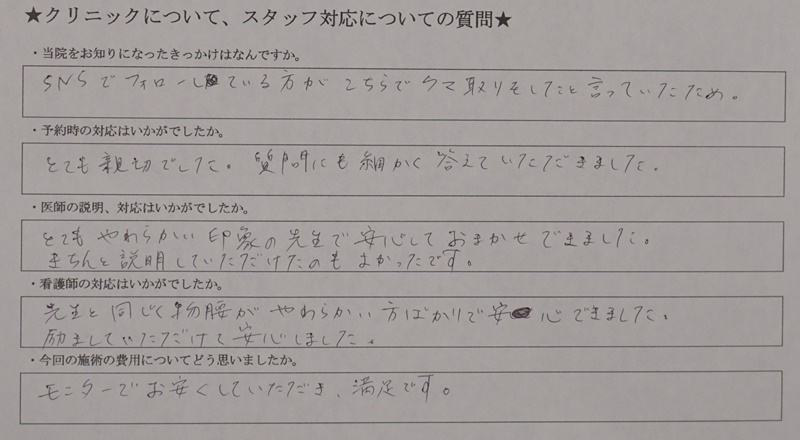 ★クリニックについて、スタッフ対応についての質問★
・当院をお知りになったきっかけはなんですか。
SNSでフォローしている方がこちらでクマ取りをしたと言っていたため。
・予約時の対応はいかがでしたか。
とても親切でした。質問にも細かく答えていただきました。
・医師の説明、対応はいかがでしたか。
とてもやわらかい印象の先生で安心しておまかせできました。
きちんと説明していただけたのもよかったです。
・看護師の対応はいかがでしたか。
先生と同じく物腰がやわらかい方ばかりで安心できました。
励ましていただけて安心しました。
・今回の施術の費用についてどう思いましたか。
モニターでお安くしていただき、満足です。